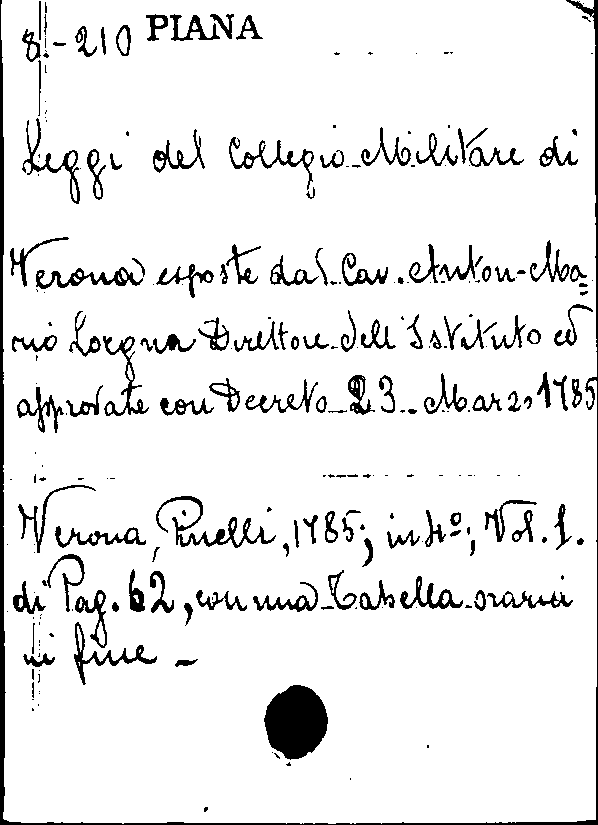 8.-210 PIANA
Leggi del Collegio Militare di
Verona esposte dal Cav. Anton-Ma=
rio Lorgna Direttore dell'Istituto ed
approvate con Decreto 23 Marzo 1785
Verona, Pinelli, 1785; in 4º; Vol. 1.
di Pag. 62, con una Tabella oraria
in fine -